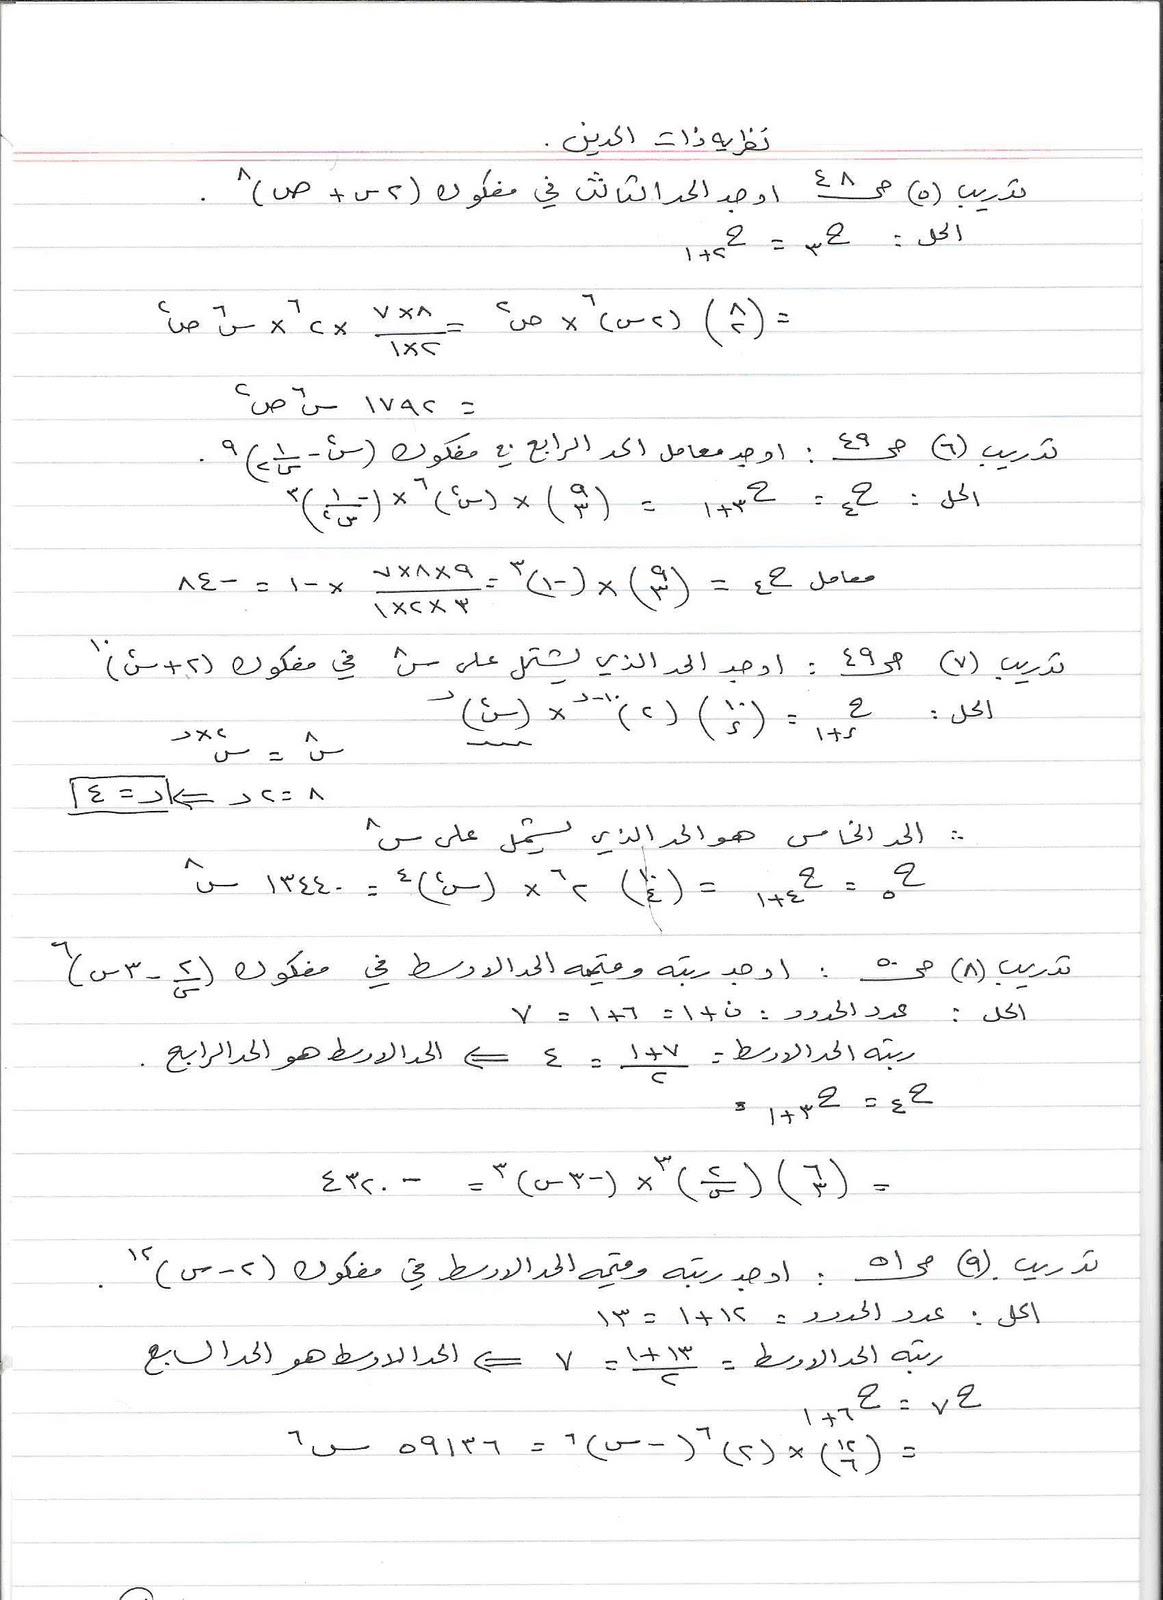 نظرية ذات الحدين .
تدريب (٥) ص ٤٨ اوجد الحد الثالث في مفكوك (٢س + ص)^٨ .
الحل : ح٣ = ح٢+١
= (٨ ٢) (٢س)^٦ × ص^٢ = ٨×٧/٢×١ × ٢^٦ × س^٦ ص^٢
= ١٧٩٢ س^٦ ص^٢
تدريب (٦) ص ٤٩ : اوجد معامل الحد الرابع في مفكوك (س^٢ - ١/س^٢)^٩ .
الحل : ح٤ = ح٣+١ = (٩ ٣) × (س^٢)^٦ × (-١/س^٢)^٣
معامل ح٤ = (٩ ٣) × (-١)^٣ = ٩×٨×٧/٣×٢×١ × -١ = -٨٤
تدريب (٧) ص ٤٩ : اوجد الحد الذي يشتمل على س^٨ في مفكوك (٢ + س^٢)^١٠
الحل : ح ر+١ = (١٠ ر) (٢)^١٠-ر × (س^٢)^ر
س^٨ = س^٢×ر
٨ = ٢ر ⇐ ر = ٤
∴ الحد الخامس هو الحد الذي يشتمل على س^٨
ح٥ = ح٤+١ = (١٠ ٤) ٢^٦ × (س^٢)^٤ = ١٣٤٤٠ س^٨
تدريب (٨) ص ٥٠ : اوجد رتبة وقيمة الحد الاوسط في مفكوك (٢/س - ٣س)^٦
الحل : عدد الحدود : ن+١ = ٦+١ = ٧
رتبة الحد الاوسط = ٧+١/٢ = ٤ ⇐ الحد الاوسط هو الحد الرابع .
ح٤ = ح٣+١ =
= (٦ ٣) (٢/س)^٣ × (-٣س)^٣ = -٤٣٢٠
تدريب (٩) ص ٥١ : اوجد رتبة وقيمة الحد الاوسط في مفكوك (٢ - س)^١٢ .
الحل : عدد الحدود = ١٢+١ = ١٣
رتبة الحد الاوسط = ١٣+١/٢ = ٧ ⇐ الحد الاوسط هو الحد السابع
ح٧ = ح٦+١
= (١٢ ٦) × (٢)^٦ (-س)^٦ = ٥٩١٣٦ س^٦